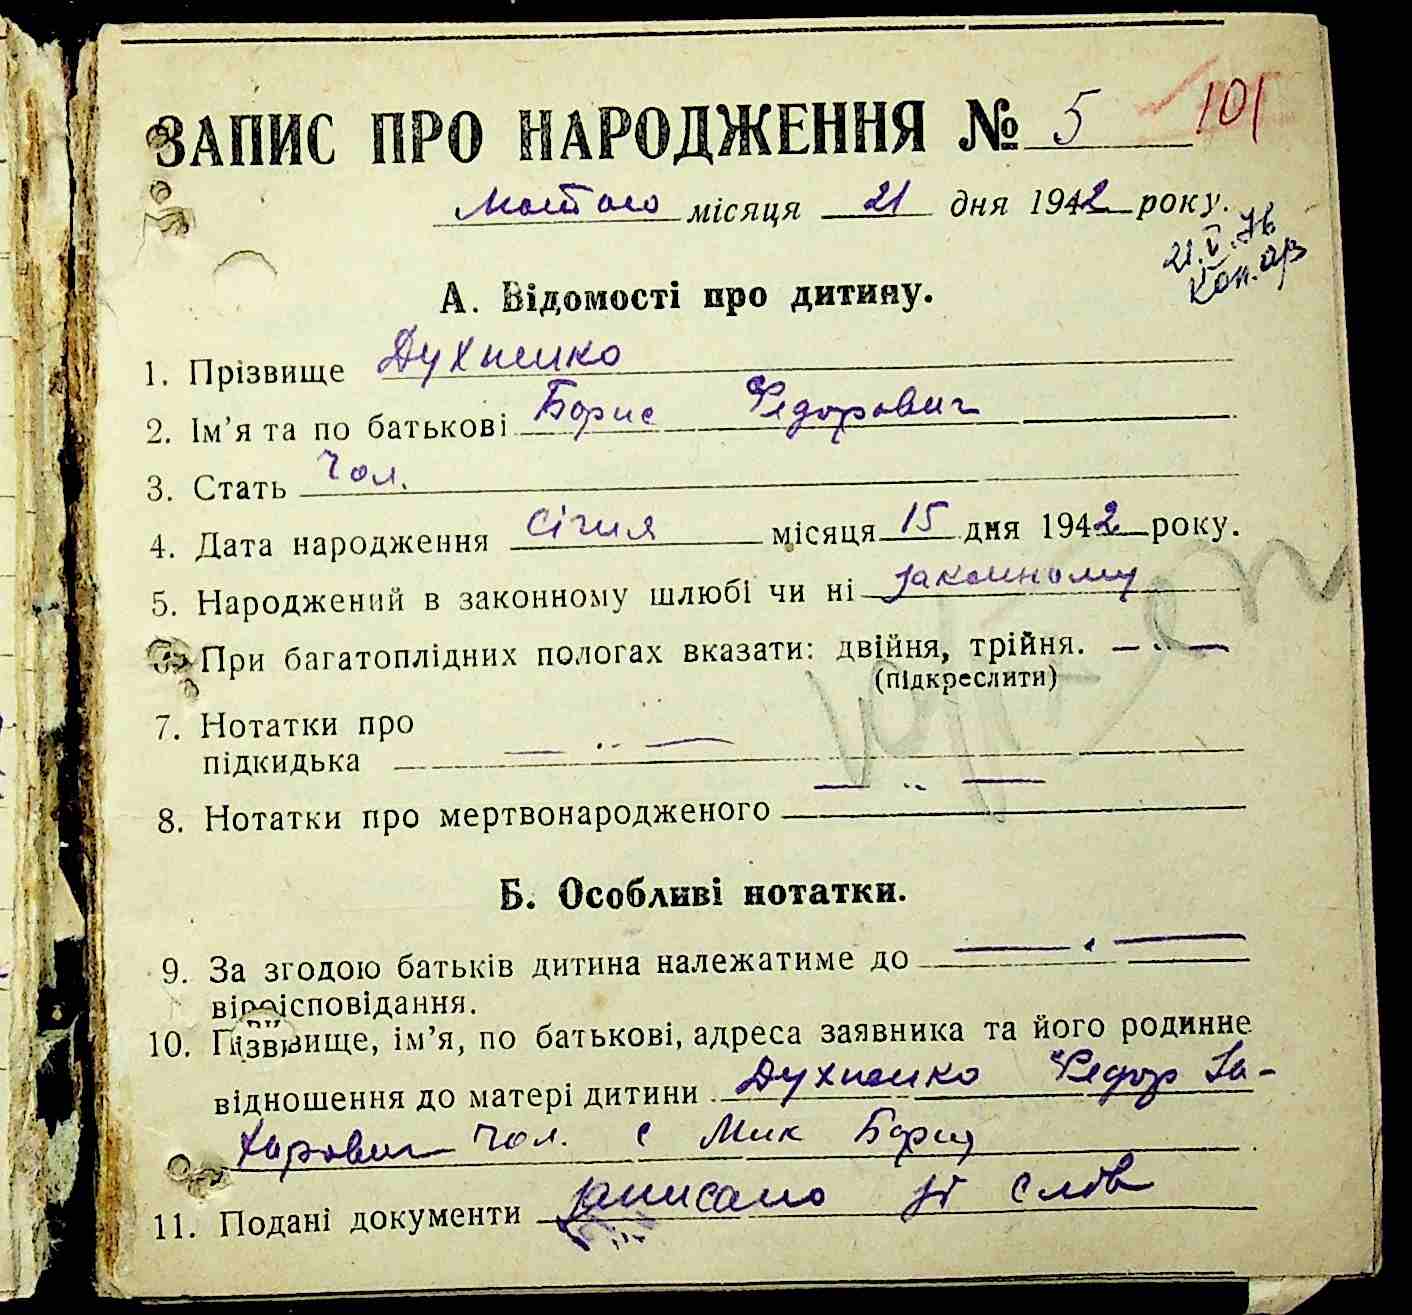 ЗАПИС ПРО НАРОДЖЕННЯ № 5 101
Лютого місяця 21 дня 1942 року.
21.V.76
А. Відомості про дитину.
1. Прізвище Духненко
2. Ім'я та по батькові Борис Федорович
3. Стать Чол.
4. Дата народження січня місяця 15 дня 1942 року.
5. Народжений в законному шлюбі чи ні законному
При багатоплідних пологах вказати: двійня, трійня. — „ —
(підкреслити)
7. Нотатки про
підкидька — „ —
8. Нотатки про мертвонародженого — „ —
Б. Особливі нотатки.
9. За згодою батьків дитина належатиме до — „ —
віроісповідання.
10. Прізвище, ім'я, по батькові, адреса заявника та його родинне
відношення до матері дитини Духненко Федор За-
харович Чол. с Мик Борщ
11. Подані документи записано зі слів